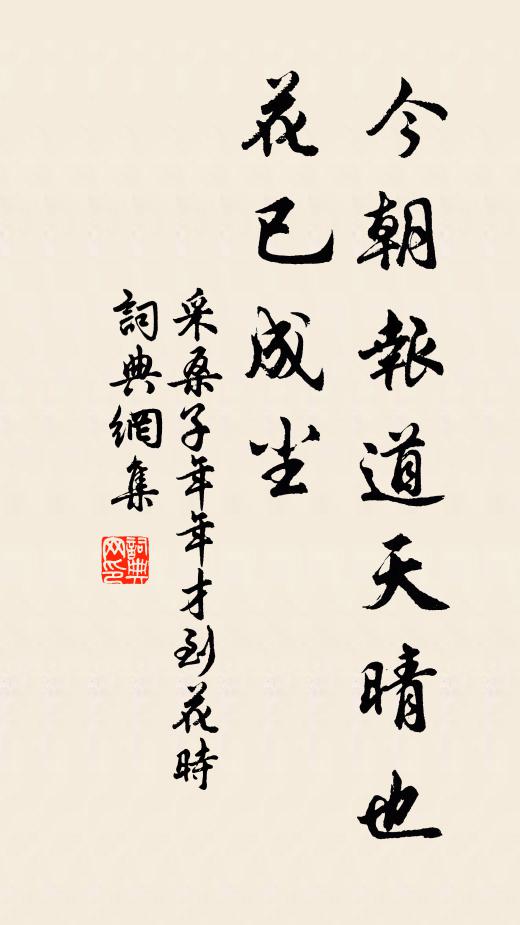 今朝報道天晴也
花已成尘
采桑子年年才到花時
詞典網集
詞典
网印